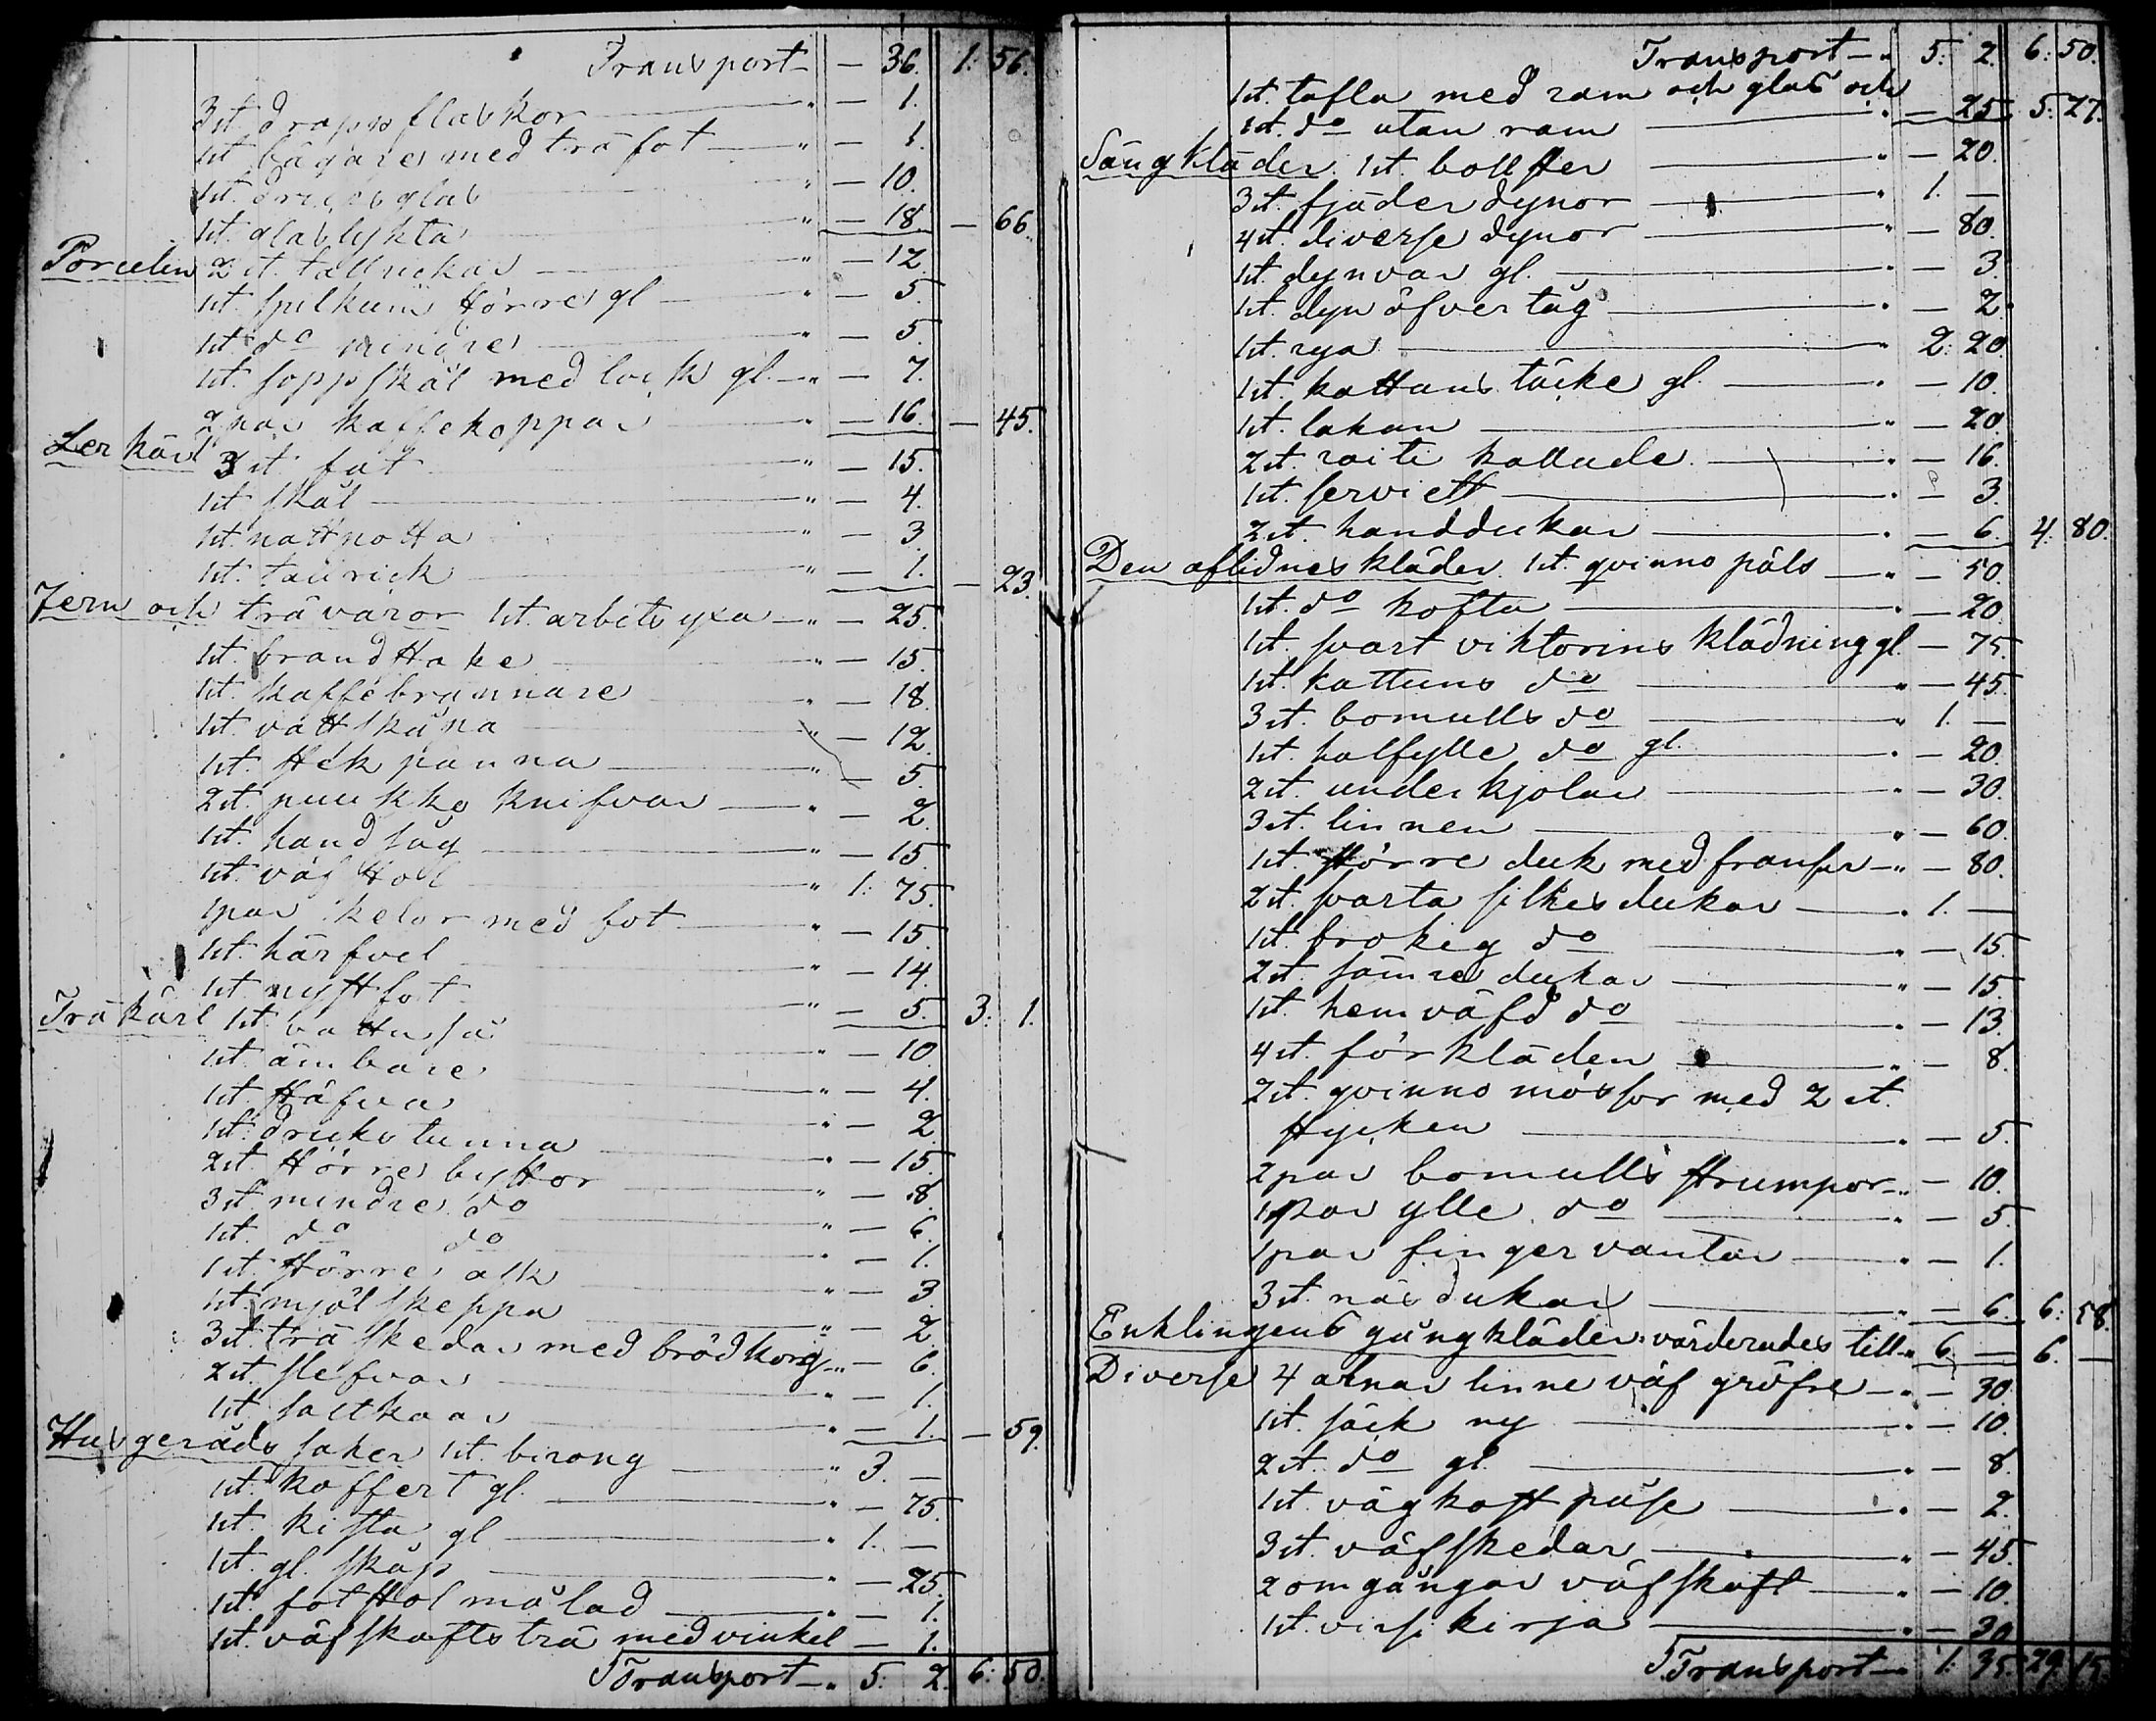 Transport — 36. 1: 56.
3 st. droppflaskor " — 1.
1 st. bägare med träfot " — 1.
1 st. dricksglas " — 10.
1 st. glaslykta " — 18. — 66.
Porcelin 2 st. tallrickar " — 12.
1 st. spilkum större gl " — 5.
1 st. do mindre " — 5.
1 st. soppskål med lock gl. " — 7.
2 par kaffekoppar " — 16. — 45.
Lerkärl 3 st. fat " — 15.
1 st. skål " — 4.
1 st. nattpotta " — 3.
1 st. tallrick " — 1. — 23.
Jern och trävaror 1 st. arbetsyxa " — 25.
1 st. brandstake " — 15.
1 st. kaffebrännare " — 18.
1 st. våttskåpa " — 12.
1 st. stekpanna " — 5.
2 st. puukko knifvar " — 2.
1 st. handsåg " — 15.
1 st. väfstol " 1: 75.
1 par kelor med fot " — 15.
1 st. härfvel " — 14.
1 st. nystfot " — 5. 3: 1.
Träkärl 1 st. vattuså " — 10.
1 st. ämbare " — 4.
1 st. stäfva " — 2.
1 st. drickstunna " — 15.
2 st. större byttor " — 8.
3 st. mindre do " — 6.
1 st. do do " — 1.
1 st. större ask " — 3.
1 st. mjölskeppa " — 2.
3 st. träskedar med brödkorg " — 6.
2 st. slefvar " — 1.
1 st. saltkaar " — 1. — 59.
Husgerådssaker 1 st. birong " 3. —
1 st. koffert gl. " — 75.
1 st. kista gl " 1. —
1 st. gl. skåp " — 25.
1 st. fotstol målad " — 1.
1 st. väfskaftsträ med vinkel — 1.
Transport " 5. 2. 6: 50.
Transport " 5: 2. 6: 50.
1 st. tafla med ram och glas och
1 st. do utan ram " — 25. 5: 27.
Sängkläder. 1 st. bolster " — 20.
3 st. fjäderdynor " 1. —
4 st. diverse dynor " — 80.
1 st. dynvar gl. " — 3.
1 st. dynöfvertåg " — 2.
1 st. rya " 2: 20.
1 st. kattuns täcke gl. " — 10.
1 st. lakan " — 20.
2 st. raiti kallade " — 16.
1 st. serviett " — 3.
2 st. handdukar " — 6. 4: 80.
Den aflidnes kläder. 1 st. qvinno päls " — 50.
1 st. do kofta " — 20.
1 st. svart viktorins klädning gl — 75.
1 st. kattuns do " — 45.
3 st. bomulls do " 1. —
1 st. halfylle do gl. " — 20.
2 st. underkjolar " — 30.
3 st. linnen " — 60.
1 st. större duk med fransar " — 80.
2 st. svarta silkesdukar " 1. —
1 st. brokig do " — 15.
2 st. sämre dukar " — 15.
1 st. hemväfd do " — 13.
4 st. förkläden " — 8.
2 st. qvinno mössor med 2 st.
stycken " — 5.
2 par bomulls strumpor " — 10.
1 par ylle do " — 5.
1 par fingervantar " — 1.
3 st. näsdukar " — 6. 6: 58.
Enklingens gångkläder värderades till " 6. — 6. —
Diverse 4 alnar linne väf gröfre " — 30.
1 st. säck ny " — 10.
2 st. do gl. " — 8.
1 st. vägkostpåse " — 2.
3 st. väfskedar " — 45.
2 omgångar väfskaft " — 10.
1 st. virsikirja " — 30.
Transport " 1: 35. 29. 15.